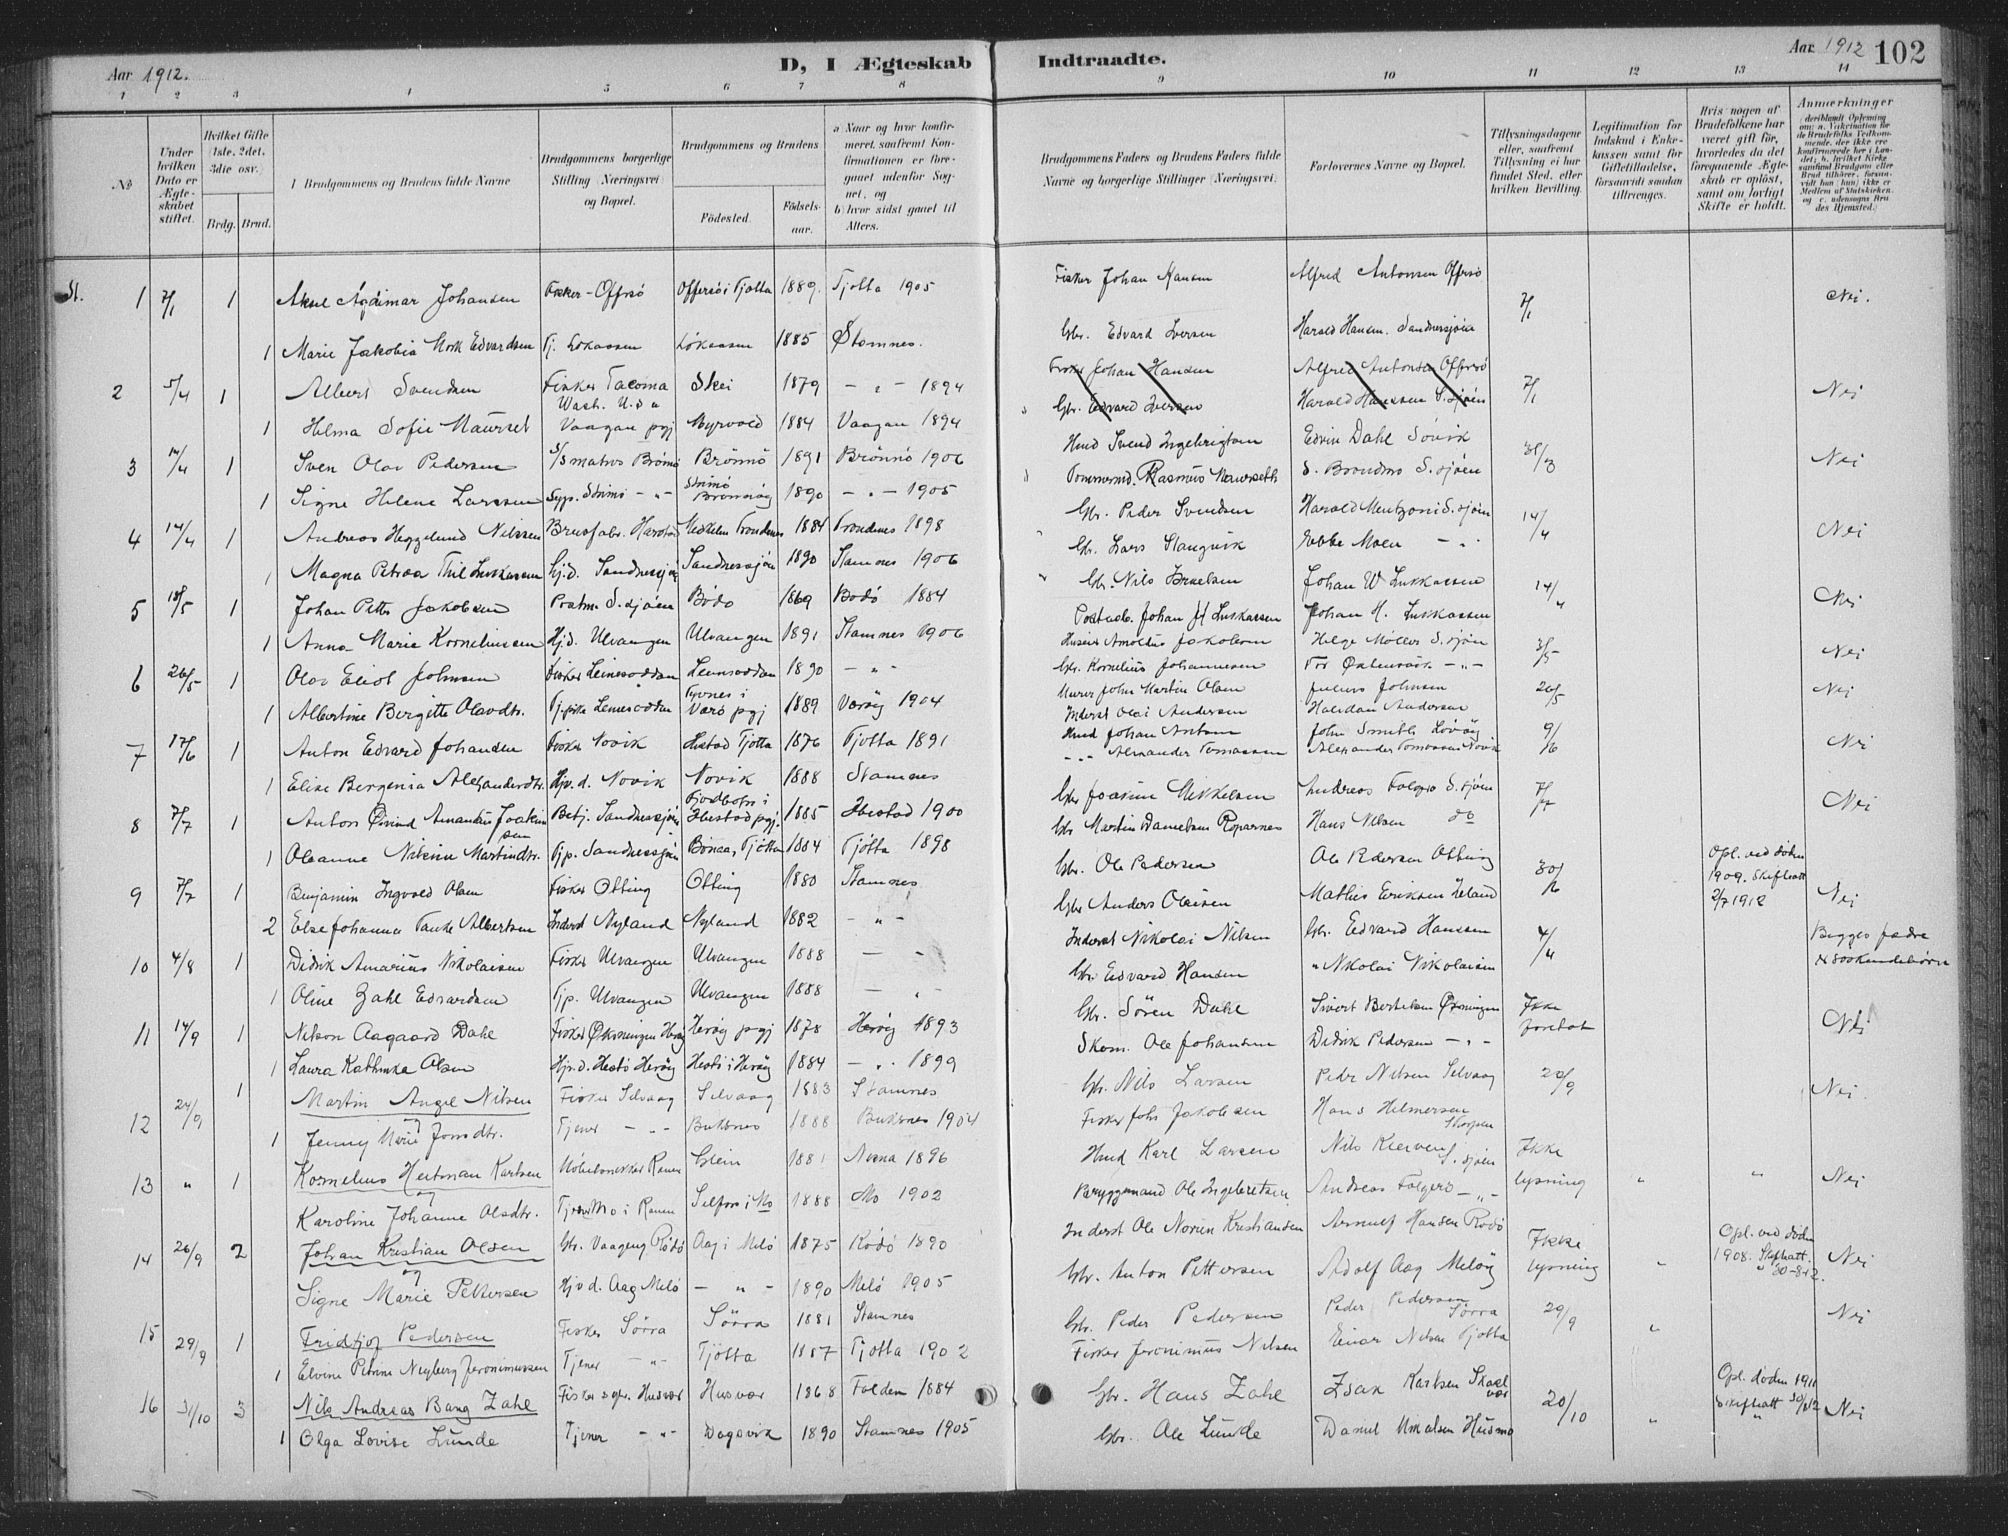 Aar 1912.
D, I Ægteskab Indtraadte.
Aar 1912 102
1 2 3 4 5 6 7 8 9 10 11 12 13 14
No
Under hvilken Dato er Ægteskabet stiftet.
Hvilket Gifte (1ste, 2det, 3die osv.)
Brdg. Brud.
Brudgommens og Brudens fulde Navne
Brudgommens borgerlige Stilling (Næringsvei) og Bopæl.
Brudgommens og Brudens
Födested.
Födselsaar.
a) Naar og hvor konfirmeret, saafremt Konfirmationen er foregaaet udenfor Sognet, og
b) hvor sidst gaaet til Alters.
Brudgommens Faders og Brudens Faders fulde Navne og borgerlige Stillinger (Næringsvei).
Forlovernes Navne og Bopæl.
Tillysningsdagene eller, saafremt Tillysning ei har fundet Sted, efter hvilken Bevilling.
Legitimation for Indskud i Enkekassen samt for Giftetilladelse, forsaavidt saadan tiltrænges.
Hvis nogen af Brudefolkene har været gift för, hvorledes da det foregaaende Ægteskab er oplöst, samt om lovligt Skifte er holdt.
Anmerkninger
1 7/1 1 Aksel Agdimar Johansen Fisker - Offersö Offersö i Tjøtta 1889. Tjøtta 1905 Fisker Johan Hansen Alfred Antonsen Offersö 7/1 Nei.
1 Marie Jakobia Mork Edvardsen Tj. Lökaasen Lökaasen 1885 Stamnes. Gbr. Edvard Iversen Harald Hansen. Sandnessjöen
2 5/4 1 Albert Svendsen Fisker Tacoma Wash. U.S.a Skei 1879 - " - 1894 Fisker Johan Hansen Alfred Antonsen Offersö 7/1 Nei
1 Helma Sofie Maurset Vaagan pgj Myrvold 1884 Vaagan 1894 Gbr. Edvard Iversen Harald Hanssen S.sjöen
3 14/4 1 Sven Olav Pedersen S/S matros Brönnö Brönnö 1891 Brönnö 1906 Hmd Svend Ingebrigtsen Edvin Dahl Sövik 31/3 Nei
1 Signe Helene Larssen 1890 - " - 1905 Tömmermd. Rasmus Maurseth S. Brandmo S.sjöen
4 14/4 1 Andreas Heggelund Nilssen Brusfabr. Harstad Trondenes 1884 Trondenes 1898 Gbr. Peder Svendsen Harald Mentzoni S.sjöen 14/4 Nei
1 Magna Petrea Thil Lukkassen Hj.d. Sandnessjöen Sandnessjöen 1890 Stamnes 1906 Gbr. Lars Slangvik Ebbe Moen - " -
5 18/5 1 Johan Petter Jakobsen Postm. S.sjöen Bodö 1869 Bodö 1884 Gbr. Nils Israelsen Johan W Lukkassen 14/4 Nei
1 Anna Marie Korneliussen Hj.d. Ulvangen Ulvangen 1891 Stamnes 1906 Postaab. Johan H Lukkassen Johan H. Lukkassen
6 26/5 1 Olav Eliot Johnsen Fisker Leinesodden Leinesodden 1890 - " - Huseier Arnoldus Jakobsen Helge Möller S.sjöen 3/5 Nei
Gbr. Kornelius Johannesen Tor Østensvik - " -
1 Albertine Bergitte Olavdtr. Leinesodden Tyvnes i Værö pgj 1889 Væröy 1904 Murer John Martin Olsen Julius Johnsen 26/5 Nei
Inderst Olai Andersen Halvdan Andersen
7 17/6 1 Anton Edvard Johansen Fisker Novik Hestad Tjøtta 1876 Tjøtta 1891 Hmd Johan Antsen John Smith Lövöy 9/6 Nei
- " - Alexander Tomassen Alexander Tomassen Novik
1 Elise Bergenia Alexanderdtr. Hjv.d. Novik Novik 1888 Stamnes
8 7/7 1 Anton Øivind Amandus Joakimsen Betj. Sandnessjöen Fjordbotn i Ibestad pgj. 1885 Ibestad 1900 Gbr Joakim Mikkelsen Andreas Falgerö S.sjöen 7/7 Nei
1 Oleanne Nilsine Martindtr. Tjp. Sandnessjöen Bönaa, Tjötta 1884 Tjøtta 1898 Gbr Martin Danielsen Röparnes Hans Nilsen do
9 7/7 1 Benjamin Ingvald Olsen Fisker Otting Otting 1880 Stamnes Gbr. Ole Pedersen Ole Pedersen Otting 30/6 Opl. ved döden 1909. Skifteatt 2/7 1912 Nei
2 Else Johanna Tanke Albertsen Inderst Nyland Nyland 1882 - " - Gbr Anders Olaisen Mathis Eriksen Zeland
10 4/8 1 Didrik Amarius Nikolaisen Fisker Ulvangen Ulvangen 1888 - " - Inderst Nikolai Nilsen Gbr. Edvard Hanssen 4/4 Begges fædre er söskendebörn
1 Oline Zahl Edvardsen Tjp. Ulvangen Ulvangen 1888 - " - Gbr. Edvard Hansen " Nikolai Nikolaisen
11 14/9 1 Nelson Aagaard Dahl Fisker Øksningen Heröy Heröy pgj 1878 Heröy 1893 Gbr. Sören Dahl Sivert Bertelsen Øksningen Ikke foretat Nei
1 Laura Kathinka Olsen Hjv.d. Hestö Heröy Hestö i Heröy 1884 - " - 1899 Skom. Ole Johansen Didrik Pedersen - " -
12 24/9 1 Martin Angel Nilsen Fisker Selvaag Selvaag 1883 Stamnes Gbr. Nils Larsen Peder Nilsen Selvaag 20/9 Nei.
1 Jenny Marie Jonsdtr. Tjener - " - Buksnes 1888 Buksnes 1904 Fisker Johs Jakobsen Hans Hilmersen Skorpen
13 " 1 Kornelius Heitman Karlsen Möbelsnekker Ranen Glein 1881 Nesna 1896 Hmd Karl Larsen Nils Kierven S.sjöen Ikke lysning " " Nei
og
Karoline Johanne Olsdtr. Tjener Mo i Ranen Selfors i Mo 1888 Mo 1902 Bryggemand Ole Ingebretsen Andreas Falgerö - " -
14 26/9 2 Johan Kristian Olsen Gbr. Vaageng Rödö Aag i Melö 1875 Rödö 1890 Inderst Ole Norien Kristiansen Arnulf Hansen Rödö Ikke lysning " Opl. ved döden 1908. Skifteatt. 30-8-12. Nei
og
Signe Marie Pettersen Hjv d. Aag Melö - " - 1890 Melö 1905 Gbr. Anton Pettersen Adolf Aag Melöy
15 29/9 1 Fridtjof Pedersen Fisker Sörra Sörra 1881 Stamnes Gbr. Peder Pedersen Peder Pedersen Sörra 29/9 " Nei
1 Elvine Petrine Nyberg Jeronimussen Tjener - " - Tjötta 1887 Tjøtta 1902 Fisker Jeronimus Nilsen Einar Nilsen Tjøtta
16 31/10 3 Nils Andreas Bang Zahl Fisker & gbr. Husvær Husvær 1868 Folden 1884 Gbr. Hans Zahl Isak Karlsen Skaalvær 20/10 " Opl. döden 1911 Skifteatt 30/8 12 Nei
1 Olga Lovise Lunde Tjener - " - Dagsvik 1890 Stamnes 1905 Gbr. Ole Lunde Daniel Husmo